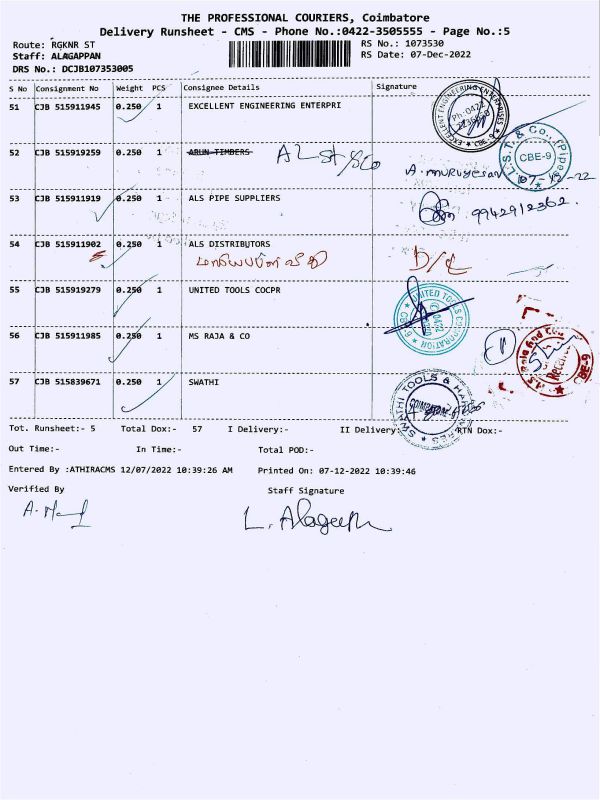 THE PROFESSIONAL COURIERS, Coimbatore
Delivery Runsheet - CMS - Phone No.:0422-3505555 - Page No.:5
Route: RGKNR ST
Staff: ALAGAPPAN
DRS No.: DCJB107353005
RS No.: 1073530
RS Date: 07-Dec-2022
S No Consignment No Weight PCS Consignee Details Signature
51 CJB 515911945 0.250 1 EXCELLENT ENGINEERING ENTERPRI
EXCELLENT ENGINEERING ENTERPRISES CBE-9
52 CJB 515919259 0.250 1 ARUN TIMBERS
A. Murugesan 07-12-22
L.S.T. & Co., (Pipes) CBE-9
53 CJB 515911919 0.250 1 ALS PIPE SUPPLIERS
9942912362.
54 CJB 515911902 0.250 1 ALS DISTRIBUTORS
D/L
55 CJB 515919279 0.250 1 UNITED TOOLS COCPR
UNITED TOOLS CORPORATION
56 CJB 515911985 0.250 1 MS RAJA & CO
Received CBE-9
57 CJB 515839671 0.250 1 SWATHI
SWATHI TOOLS & COIMBATORE
Tot. Runsheet:- 5 Total Dox:- 57 I Delivery:- II Delivery:- RTN Dox:-
Out Time:- In Time:- Total POD:-
Entered By :ATHIRACMS 12/07/2022 10:39:26 AM Printed On: 07-12-2022 10:39:46
Verified By Staff Signature